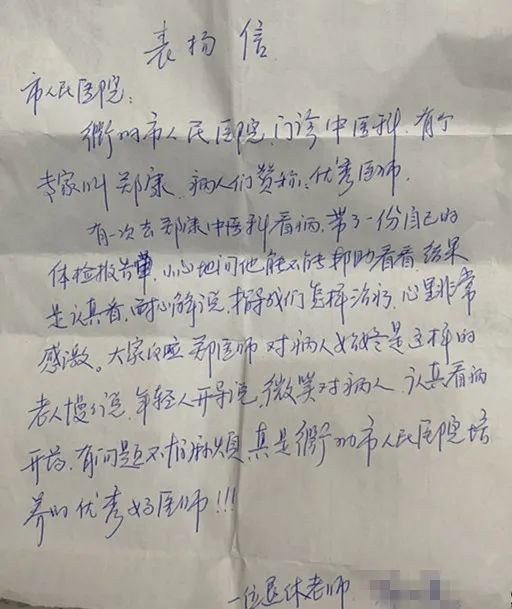 表扬信
市人民医院:
我们市人民医院,门诊中医科,有个
专家叫郑康,病人们赞称,优秀医师.
有一次去郑康中医科看病,带了一份自己的
体检报告单,小心地问他能不能帮助看看,结果
是认真看,耐心解说,指导我们怎样治病,心里非常
感激。大家反应郑医师对病人始终是这样的
老人慢慢说,年轻人开导说,微笑对病人,认真看病
开药,有问题不怕麻烦,真是我们市人民医院培
养的优秀好医师!!!
一位退休老师